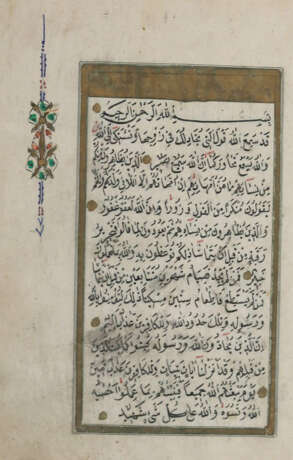 بسم الله الرحمن الرحيم
قد سمع الله قول التي تجادلك في زوجها وتشتكي الى الله
والله يسمع تحاوركما ان الله سميع بصير الذين يظاهرون منكم
من نسائهم ما هن امهاتهم ان امهاتهم الا اللائي ولدنهم وانهم
ليقولون منكرا من القول وزورا وان الله لعفو غفور
والذين يظاهرون من نسائهم ثم يعودون لما قالوا فتحرير
رقبة من قبل ان يتماسا ذلكم توعظون به والله بما تعملون
خبير فمن لم يجد فصيام شهرين متتابعين من قبل ان يتماسا
فمن لم يستطع فاطعام ستين مسكينا ذلك لتؤمنوا بالله
ورسوله وتلك حدود الله وللكافرين عذاب اليم
ان الذين يحادون الله ورسوله كبتوا كما كبت الذين
من قبلهم وقد انزلنا ايات بينات وللكافرين عذاب مهين
يوم يبعثهم الله جميعا فينبئهم بما عملوا احصيه
الله ونسوه والله على كل شئ شهيد